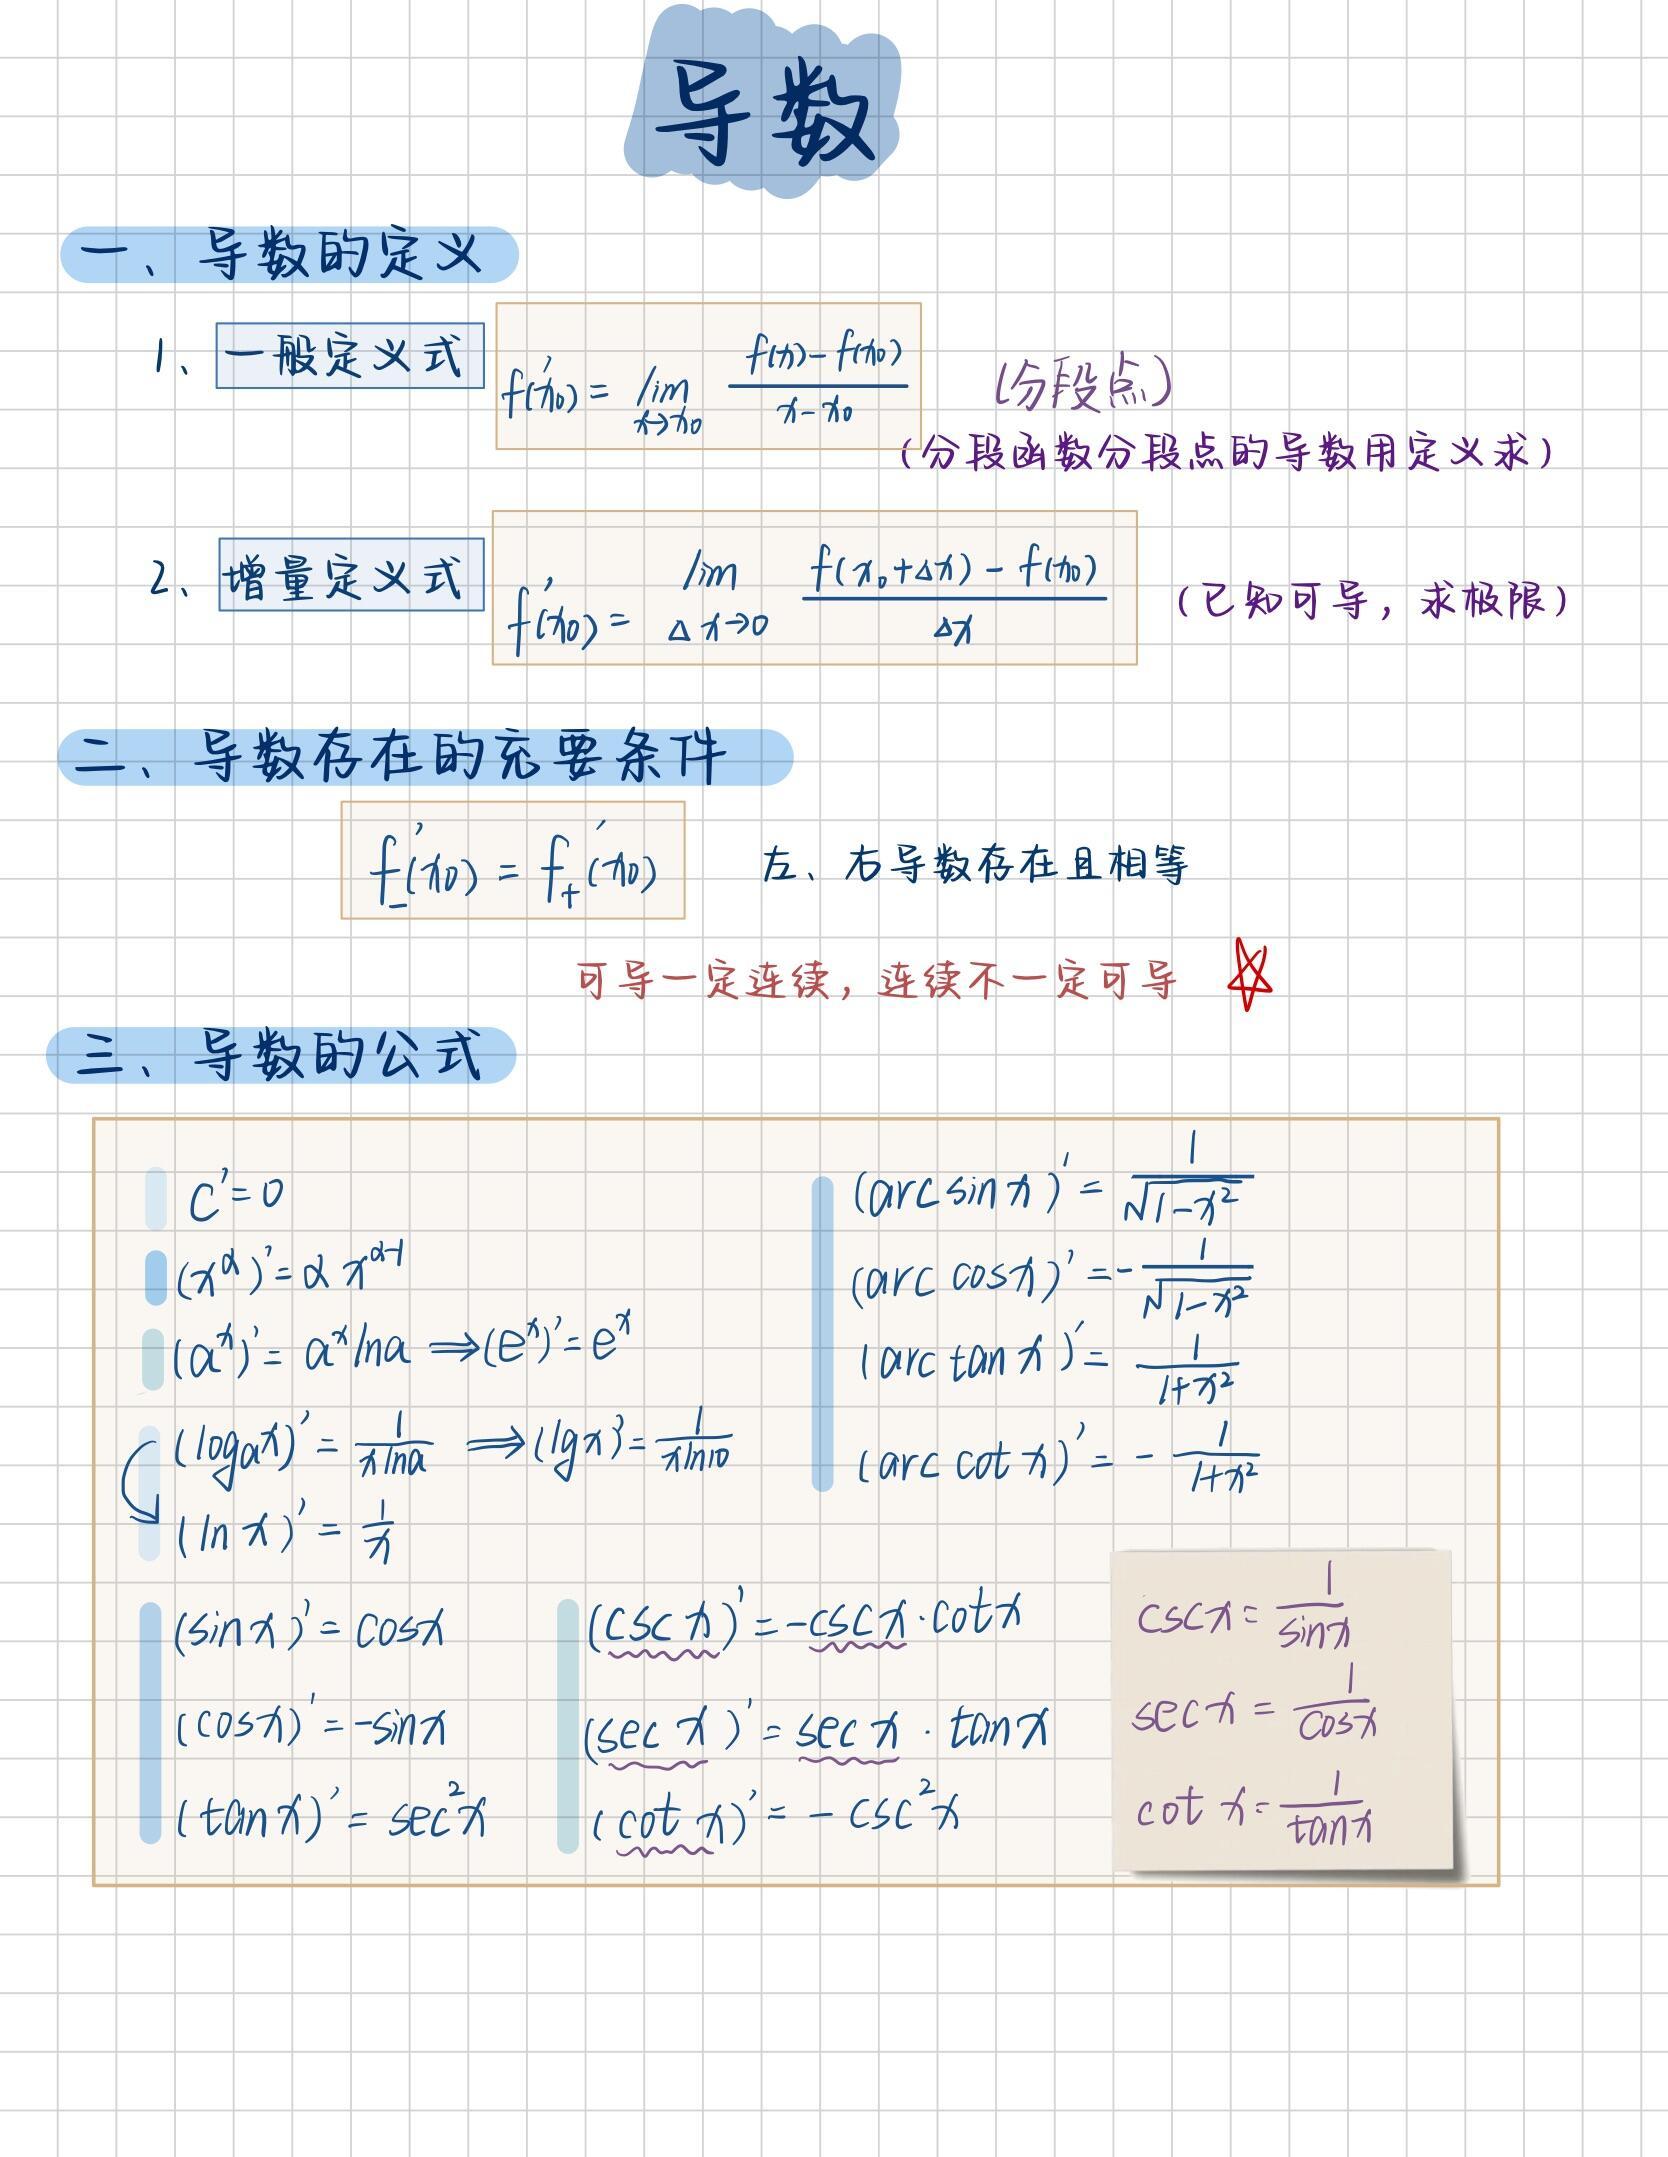 导数
一、导数的定义
1、一般定义式 f'(x₀) = lim x→x₀ (f(x) - f(x₀))/(x - x₀) (分段点)
(分段函数分段点的导数用定义求)
2、增量定义式 f'(x₀) = lim Δx→0 (f(x₀+Δx) - f(x₀))/Δx (已知可导，求极限)
二、导数存在的充要条件
f₋'(x₀) = f₊'(x₀) 左、右导数存在且相等
可导一定连续，连续不一定可导
三、导数的公式
C' = 0
(x^α)' = α x^(α-1)
(a^x)' = a^x lna ⟹ (e^x)' = e^x
(logₐx)' = 1/(xlna) ⟹ (lgx)' = 1/(xln10)
(lnx)' = 1/x
(arcsinx)' = 1/√(1-x²)
(arc cosx)' = -1/√(1-x²)
(arc tanx)' = 1/(1+x²)
(arc cotx)' = -1/(1+x²)
(sinx)' = cosx
(cosx)' = -sinx
(tanx)' = sec²x
(cscx)' = -cscx·cotx
(secx)' = secx·tanx
(cotx)' = -csc²x
cscx = 1/sinx
secx = 1/cosx
cotx = 1/tanx